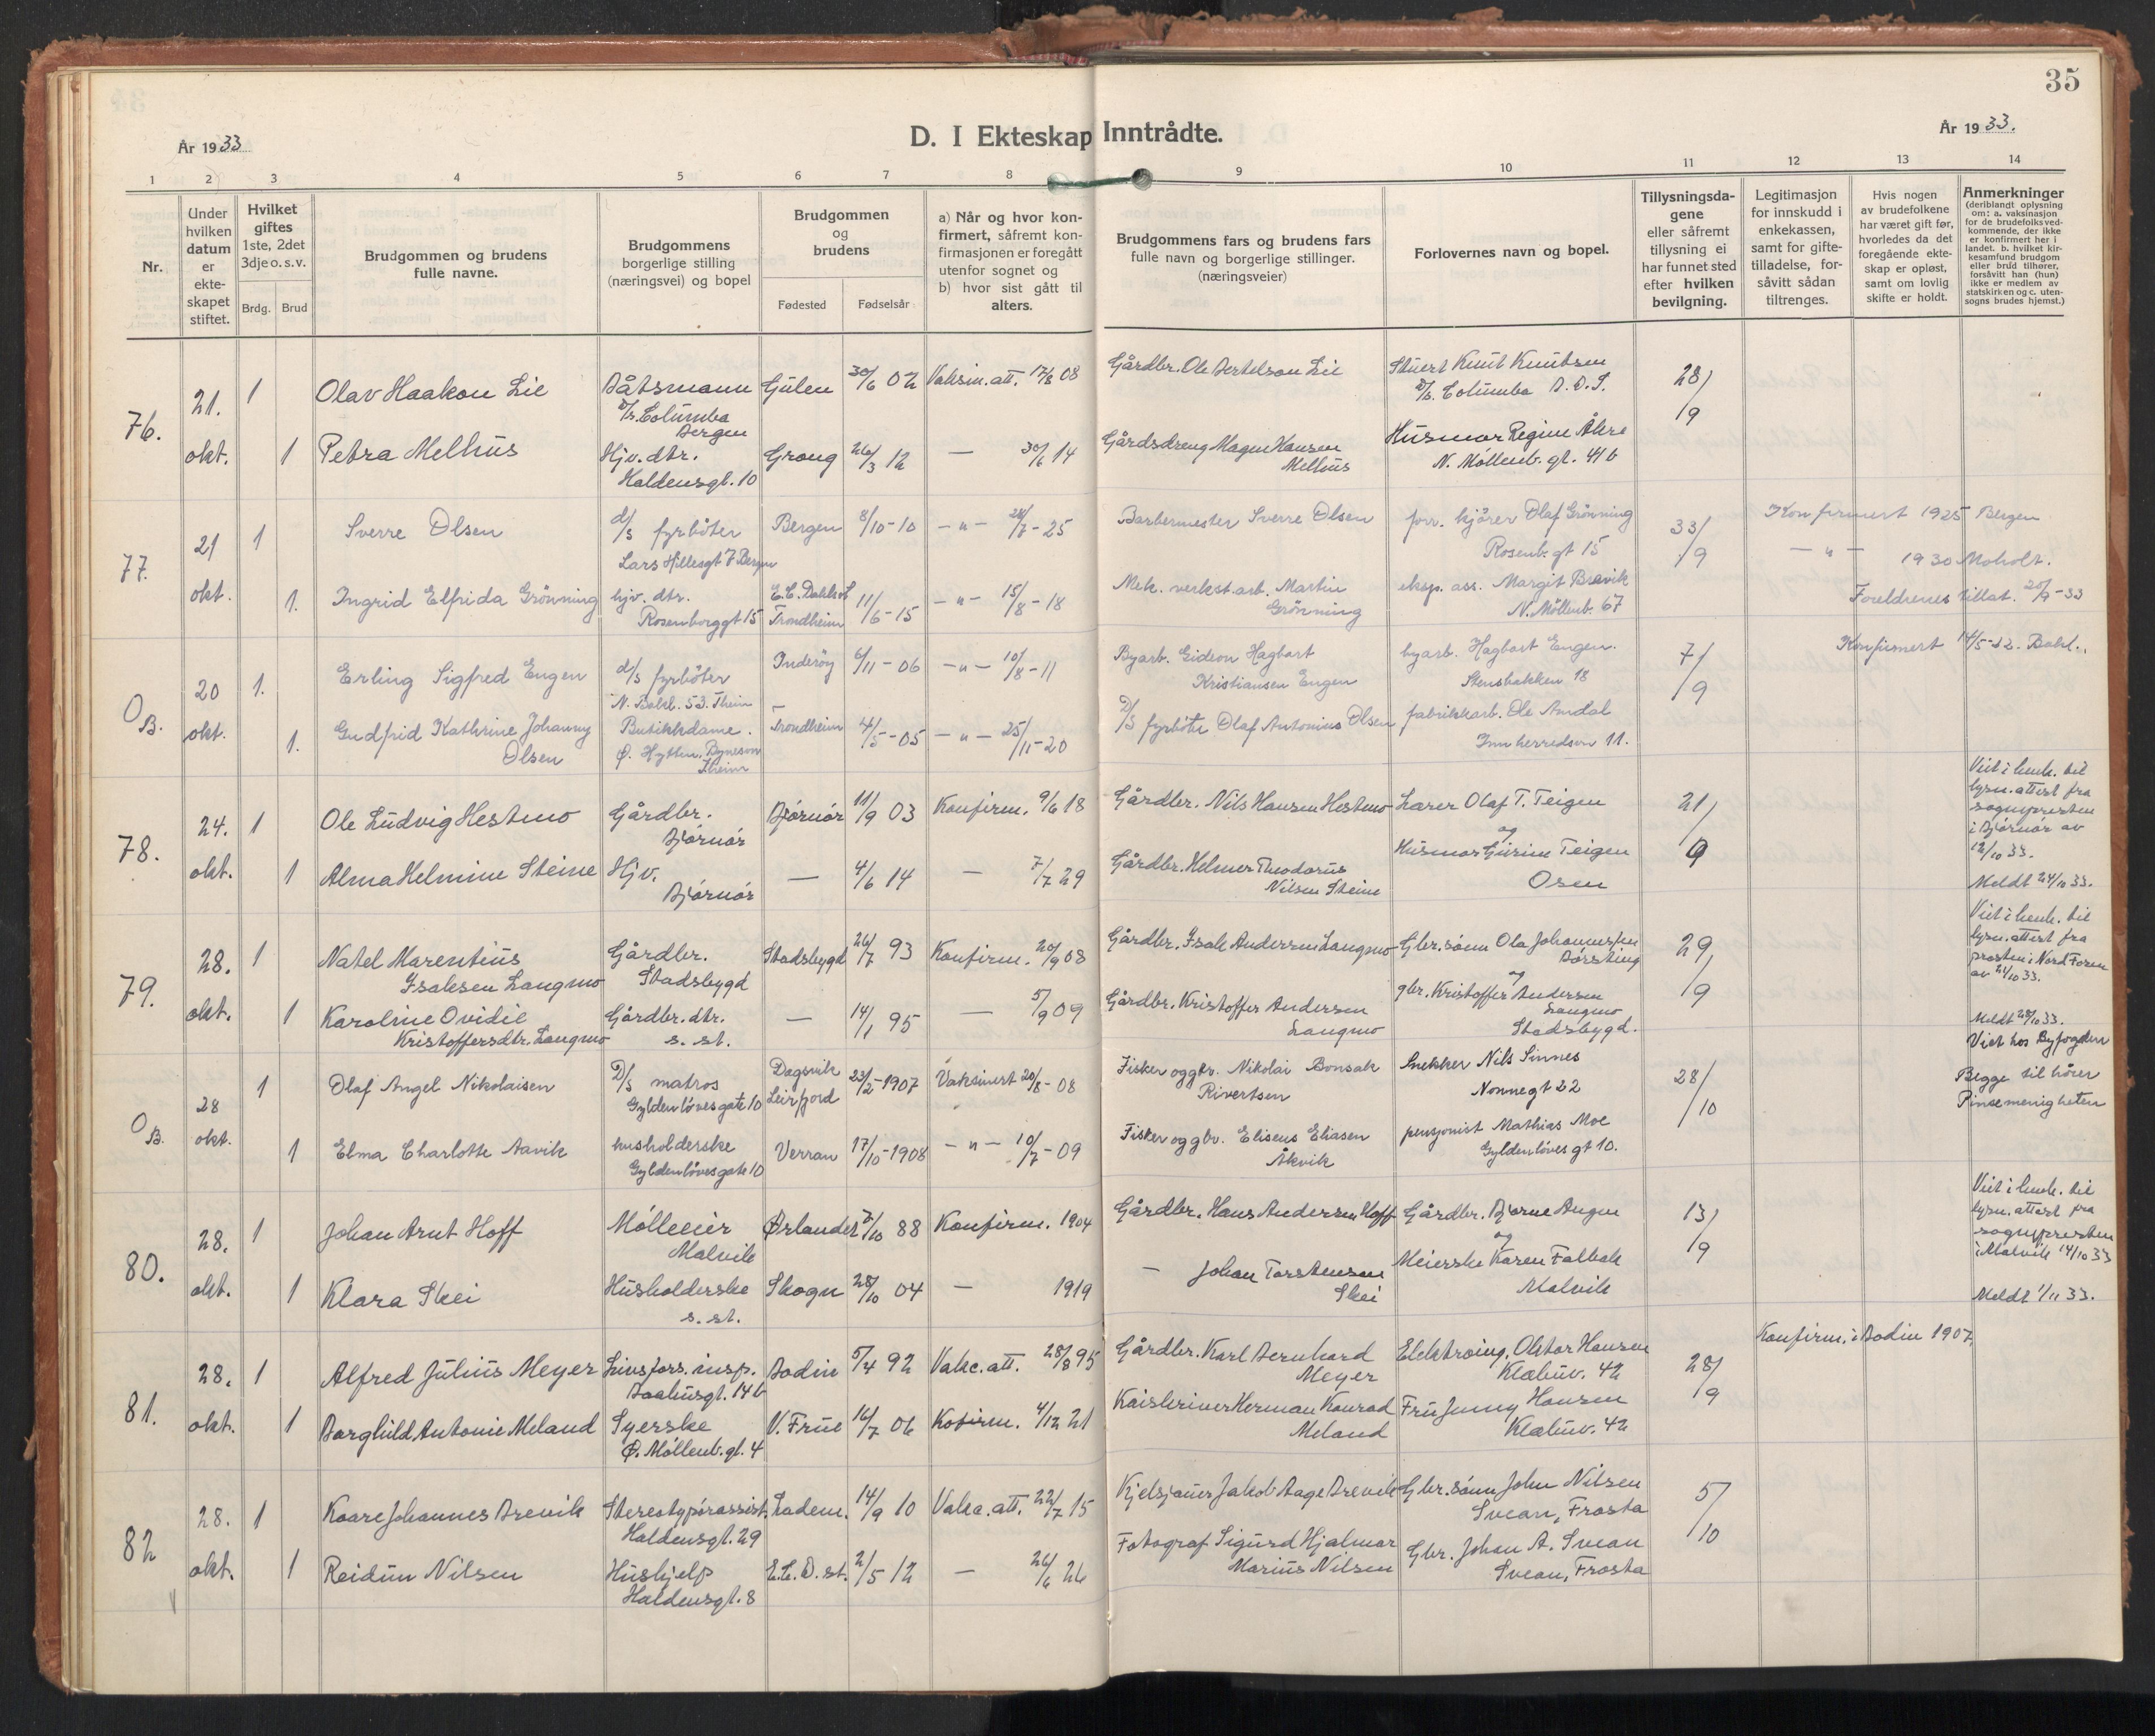 35
År 1933
D. I Ekteskap Inntrådte.
År 1933.
1 2 3 4 5 6 7 8 9 10 11 12 13 14
Nr.
Under hvilken datum er ekteskapet stiftet.
Hvilket giftes 1ste, 2det 3dje o. s. v.
Brdg. Brud
Brudgommen og brudens fulle navne.
Brudgommens borgerlige stilling (næringsvei) og bopel
Brudgommen og brudens
Fødested Fødselsår
a) Når og hvor konfirmert, såfremt konfirmasjonen er foregått utenfor sognet og b) hvor sist gått til alters.
Brudgommens fars og brudens fars fulle navn og borgerlige stillinger. (næringsveier)
Forlovernes navn og bopel.
Tillysningsdagene eller såfremt tillysning ei har funnet sted efter hvilken bevilgning.
Legitimasjon for innskudd i enkekassen, samt for giftetilladelse, forsåvitt sådan tiltrenges.
Hvis nogen av brudefolkene har været gift før, hvorledes da det foregående ekteskap er opløst, samt om lovlig skifte er holdt.
Anmerkninger (deriblandt oplysning om: a. vaksinasjon for de brudefolksvedkommende, der ikke er konfirmert her i landet. b. hvilket kirkesamfund brudgom eller brud tilhører, forsåvitt han (hun) ikke er medlem av statskirken og c. utensogns brudes hjemst.)
76. 21. okt.
1 Olav Haakon Lie Båtsmann D/s. Columba Bergen Gulen 30/6 02 Vaksin. att. 17/8 08 Gårdbr. Ole Bertelson Lie Stuert Knut Knutsen D/s. Columba B.D.S. 28/9
1 Petra Melhus Hjv. dtr. Haldensgt. 10 Grong 26/3 12 — 30/6 14 Gårdsdreng Magne Hansen Melhus Husmor Regine Åkre N. Møllenb. gt. 41 b
77. 21 okt.
1 Sverre Olsen d/s fyrbøter Lars Hillesgt 7 Bergen Bergen 8/10-10 —"— 28/7-25 Barbermester Sverre Olsen forr. kjører Olaf Grönning Rosenb. gt 15 33/9 Konfirmert 1925 Bergen
1. Ingrid Elfrida Grönning hjv. dtr. Rosenborggt 15 E.C. Dahls st Trondheim 11/6-15 —"— 15/8-18 Mek. verkst. arb. Martin Grönning eksp. ass. Margit Brevik N. Möllenb. 67 —"— 1930 Moholt.
Foreldrenes tillat. 20/9-33
OB. 20 okt.
1. Erling Sigfred Engen d/s fyrböter N. Bakl. 53. Theim Inderöy 6/11-06 —"— 10/8-11 Byarb. Gideon Hagbart Kristiansen Engen byarb. Hagbart Engen. Stensbakken 18 7/9 Konfirmert 14/5-22. Bakl.
1. Gudfrid Kathrine Johanny Olsen Butikkdame. Ø. Hytten. Byneson Theim Trondheim 4/5-05 —"— 25/11-20 D/S fyrböte Olaf Antonius Olsen fabrikkarb. Ole Amdal Innherredsvn 11.
78. 24. okt.
1 Ole Ludvig Hestmo Gårdbr. Bjørnør Bjørnør 11/9 03 Konfirm. 9/6 18 Gårdbr. Nils Hansen Hestmo Lærer Olaf T. Teigen og 21/9 Viet i henh. til lysn. attest fra sognepresten i Bjørnør av 12/10 33.
1 Alma Helmine Steine Hjv. Bjørnør — 4/6 14 — 7/7 29 Gårdbr. Helmer Theodorus Nilsen Steine Husmor Gurine Teigen Osen Meldt 24/10 33.
79. 28. okt.
1 Natel Marentius Isaksen Langmo Gårdbr. Stadsbygd Stadsbygd 26/7 93 Konfirm. 20/9 08 Gårdbr. Isak Andersen Langmo Gbr. sønn Ola Johannesen Børsting og 29/9 Viet i henh. til lysn. attest fra prosten i Nord Fosen av 21/10 33.
1 Karoline Ovidie Kristoffersdtr. Langmo Gårdbr. dtr. s. st. — 14/1 95 — 5/9 09 Gårdbr. Kristoffer Andersen Langmo gbr. Kristoffer Andersen Langmo Stadsbygd. Meldt 28/10 33.
OB. 28 okt.
1 Olaf Angel Nikolaisen D/s matros Gyldenlövesgate 10 Dagsvik Leirfjord 23/2-1907 Vaksinert 20/8-08 Fisker og gbr. Nikolai Bonsak Rivertsen Snekker Nils Sinnes Nonnegt 22 28/10 Viet hos Byfogden Begge tilhører Pinsemenigheten
1 Elma Charlotte Aavik husholderske Gyldenlövesgate 10 Verran 17/10-1908 —"— 10/7-09 Fisker og gbr. Eliseus Eliasen Åkvik pensjonist Mathias Moe Gyldenlöves gt 10.
80. 28. okt.
1 Johan Arnt Hoff Mølleeier Malvik Ørlandet 7/10 88 Konfirm. 1904 Gårdbr. Hans Andersen Hoff Gårdbr. Bjarne Augen og 13/9 Viet i henh. til lysn. attest fra sognepresten i Malvik 14/10 33
1 Klara Skei Husholderske s. st. Skogn 28/10 04 — 1919 — Johan Torstensen Skei Meierske Karen Falbak Malvik Meldt 1/11 33.
81. 28. okt.
1 Alfred Julius Meyer Livsfors. insp. Baahusgt. 14 b Bodin 5/4 92 Vakc. att. 28/8 95 Gårdbr. Karl Bernhard Meyer Elektroing. Oktar Hansen Klæbuv. 42 28/9 Konfirm. i Bodin 1907.
1 Borghild Antonie Meland Syerske Ø. Møllenb. gt. 4 V. Frue 16/7 06 Kofirm. 4/12 21 Kaiskriver Herman Konrad Meland Fru Jenny Hansen Klæbuv. 42
82 28. okt.
1 Kaare Johannes Brevik Stereotypørassist. Haldensgt. 29 Lademo. 14/9 10 Vakc. att. 22/7 15 Kjelsjauer Jakob Aage Brevik Gbr. sønn John Nilsen Svean, Frosta 5/10
1 Reidun Nilsen Hushjelp Haldensgt. 8 E.C.D. st. 2/5 12 — 26/6 26 Fotograf Sigurd Hjalmar Marius Nilsen Gbr. Johan A. Svean Svean, Frosta